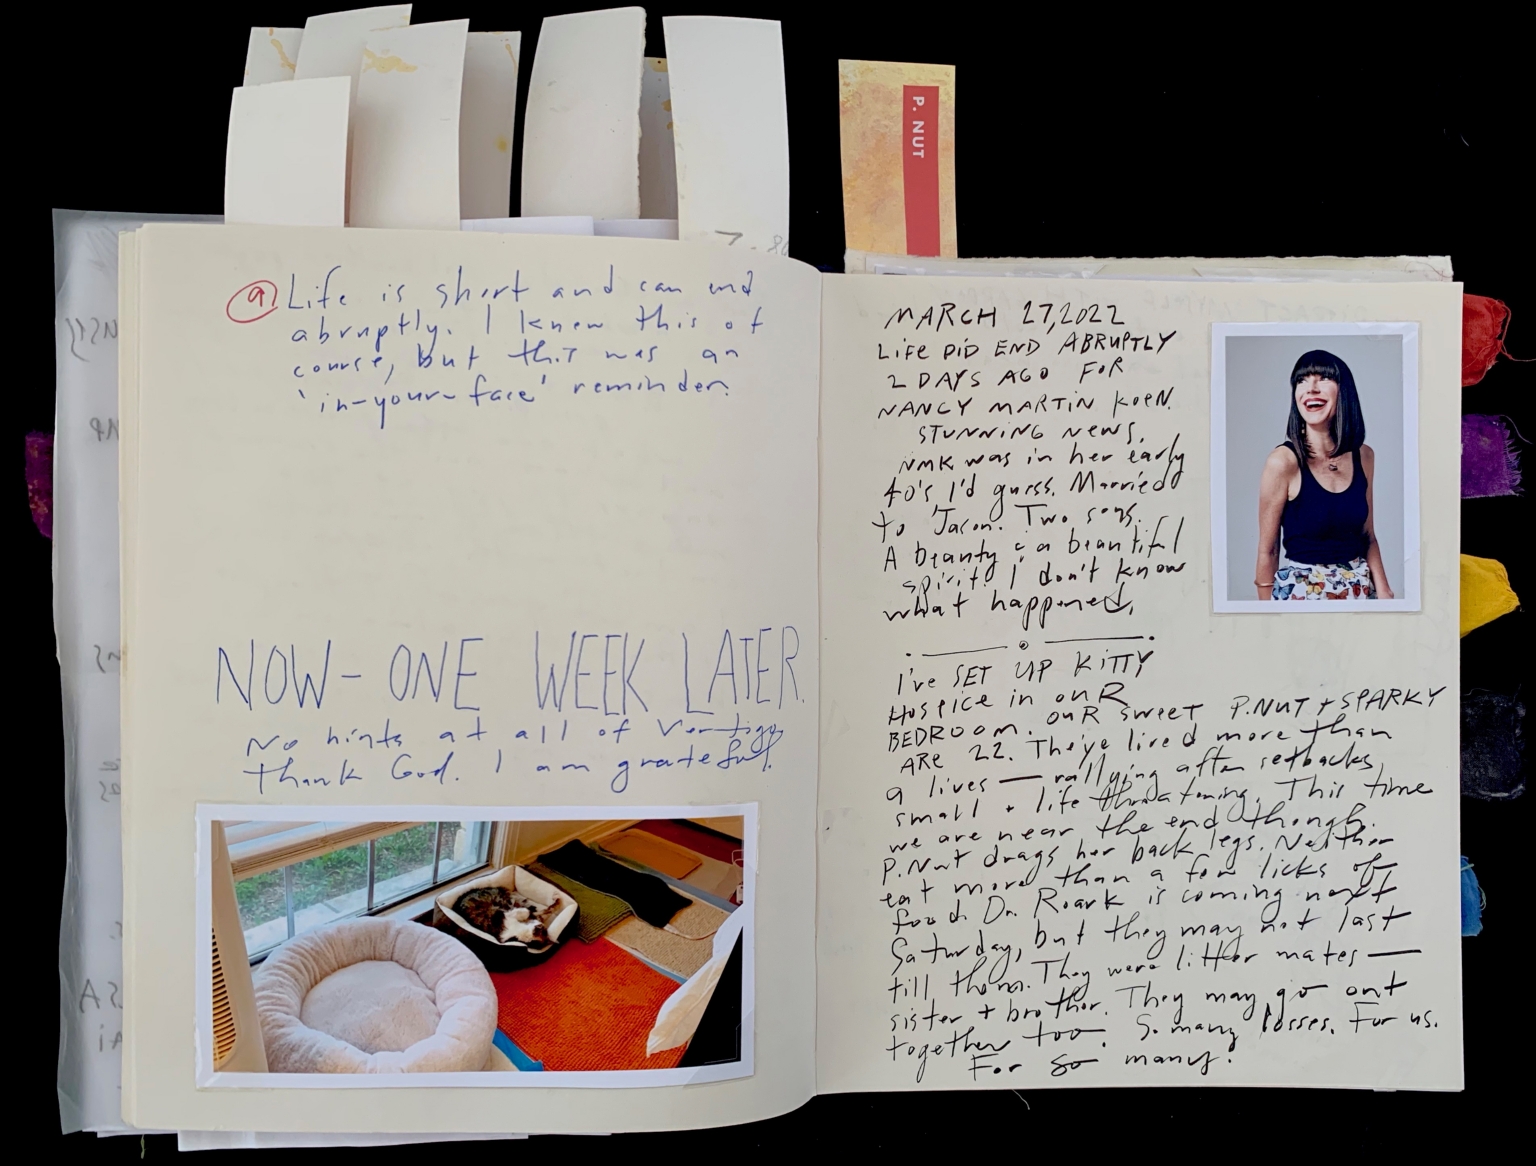 P. NUT
9 Life is short and can end
abruptly. I knew this of
course, but this was an
'in-your-face' reminder.
NOW - ONE WEEK LATER.
No hints at all of Vertigo
Thank God. I am grateful.
MARCH 27, 2022
LIFE DID END ABRUPTLY
2 DAYS AGO FOR
NANCY MARTIN KOEN.
STUNNING NEWS.
NMK was in her early
40's I'd guess. Married
to Jason. Two sons.
A beauty & a beautiful
spirit! I don't know
what happened.
I've SET UP KITTY
HOSPICE in OUR
BEDROOM. OUR SWEET P.NUT + SPARKY
ARE 22. They've lived more than
9 lives — rallying after setbacks
small + life threatening. This time
we are near the end though.
P.Nut drags her back legs. Neither
eat more than a few licks of
food. Dr. Roark is coming next
Saturday, but they may not last
till then. They were litter mates —
sister + brother. They may go out
together too. So many losses. For us.
For so many.